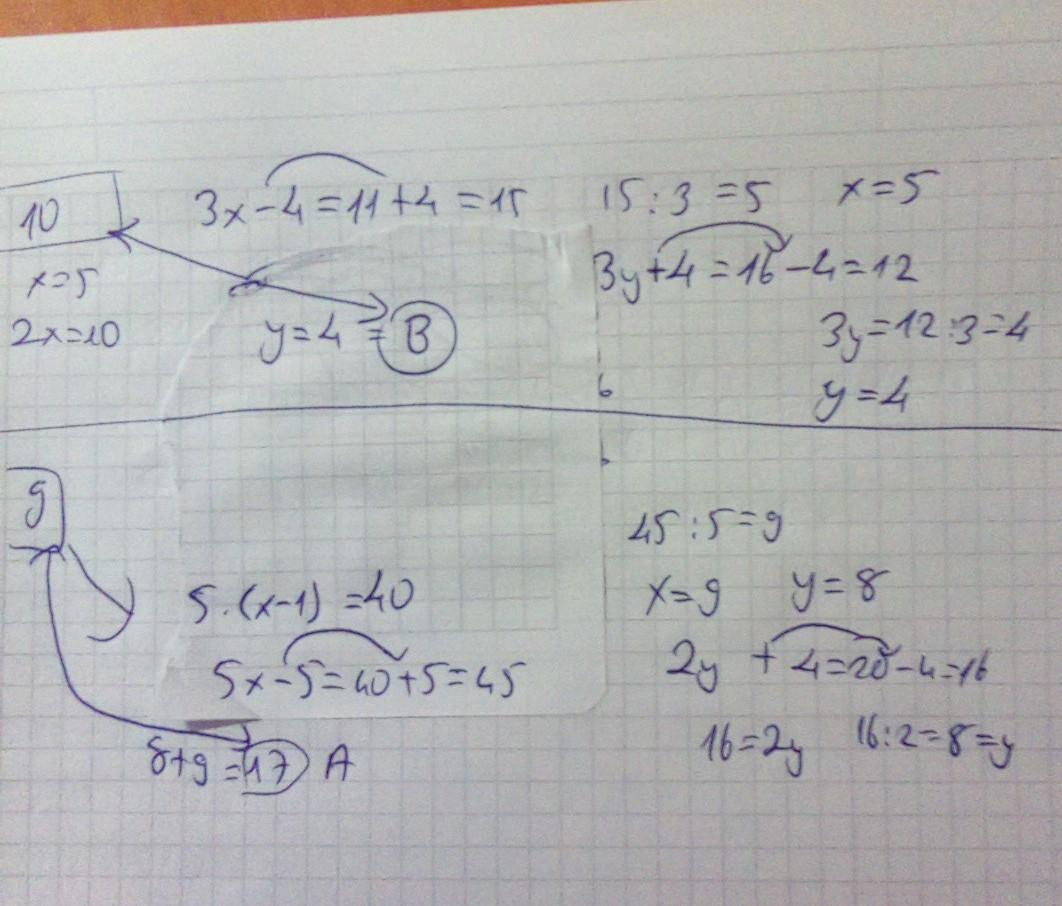 10
3x-4=11+4=15
15:3=5 x=5
3y+4=16-4=12
x=5
2x=10
y=4 = B
3y=12:3=4
y=4
9
45:5=9
5·(x-1)=40
x=9 y=8
5x-5=40+5=45
2y + 4=20-4=16
8+9=17 A
16=2y 16:2=8=y